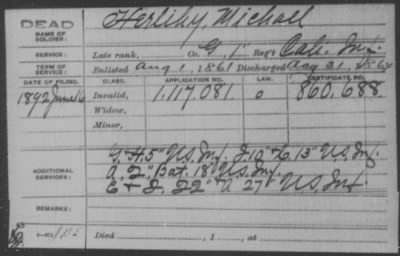 DEAD
NAME OF SOLDIER:
Herlihy, Michael
SERVICE:
Late rank, Co. G, 1" Reg't Cal. Inf.
TERM OF SERVICE:
Enlisted Aug 1, 1861 Discharged Aug 31, 1864
DATE OF FILING. CLASS. APPLICATION NO. LAW. CERTIFICATE NO.
1892 June 16 Invalid, 1,117,081. 860,688.
Widow,
Minor,
ADDITIONAL SERVICES:
G. H. 5" U.S. Inf. 13" U.S. Inf.
A, 2" Bat. 18" U.S. Inf.
22" 27" U.S. Inf.
REMARKS:
Died , 1 , at